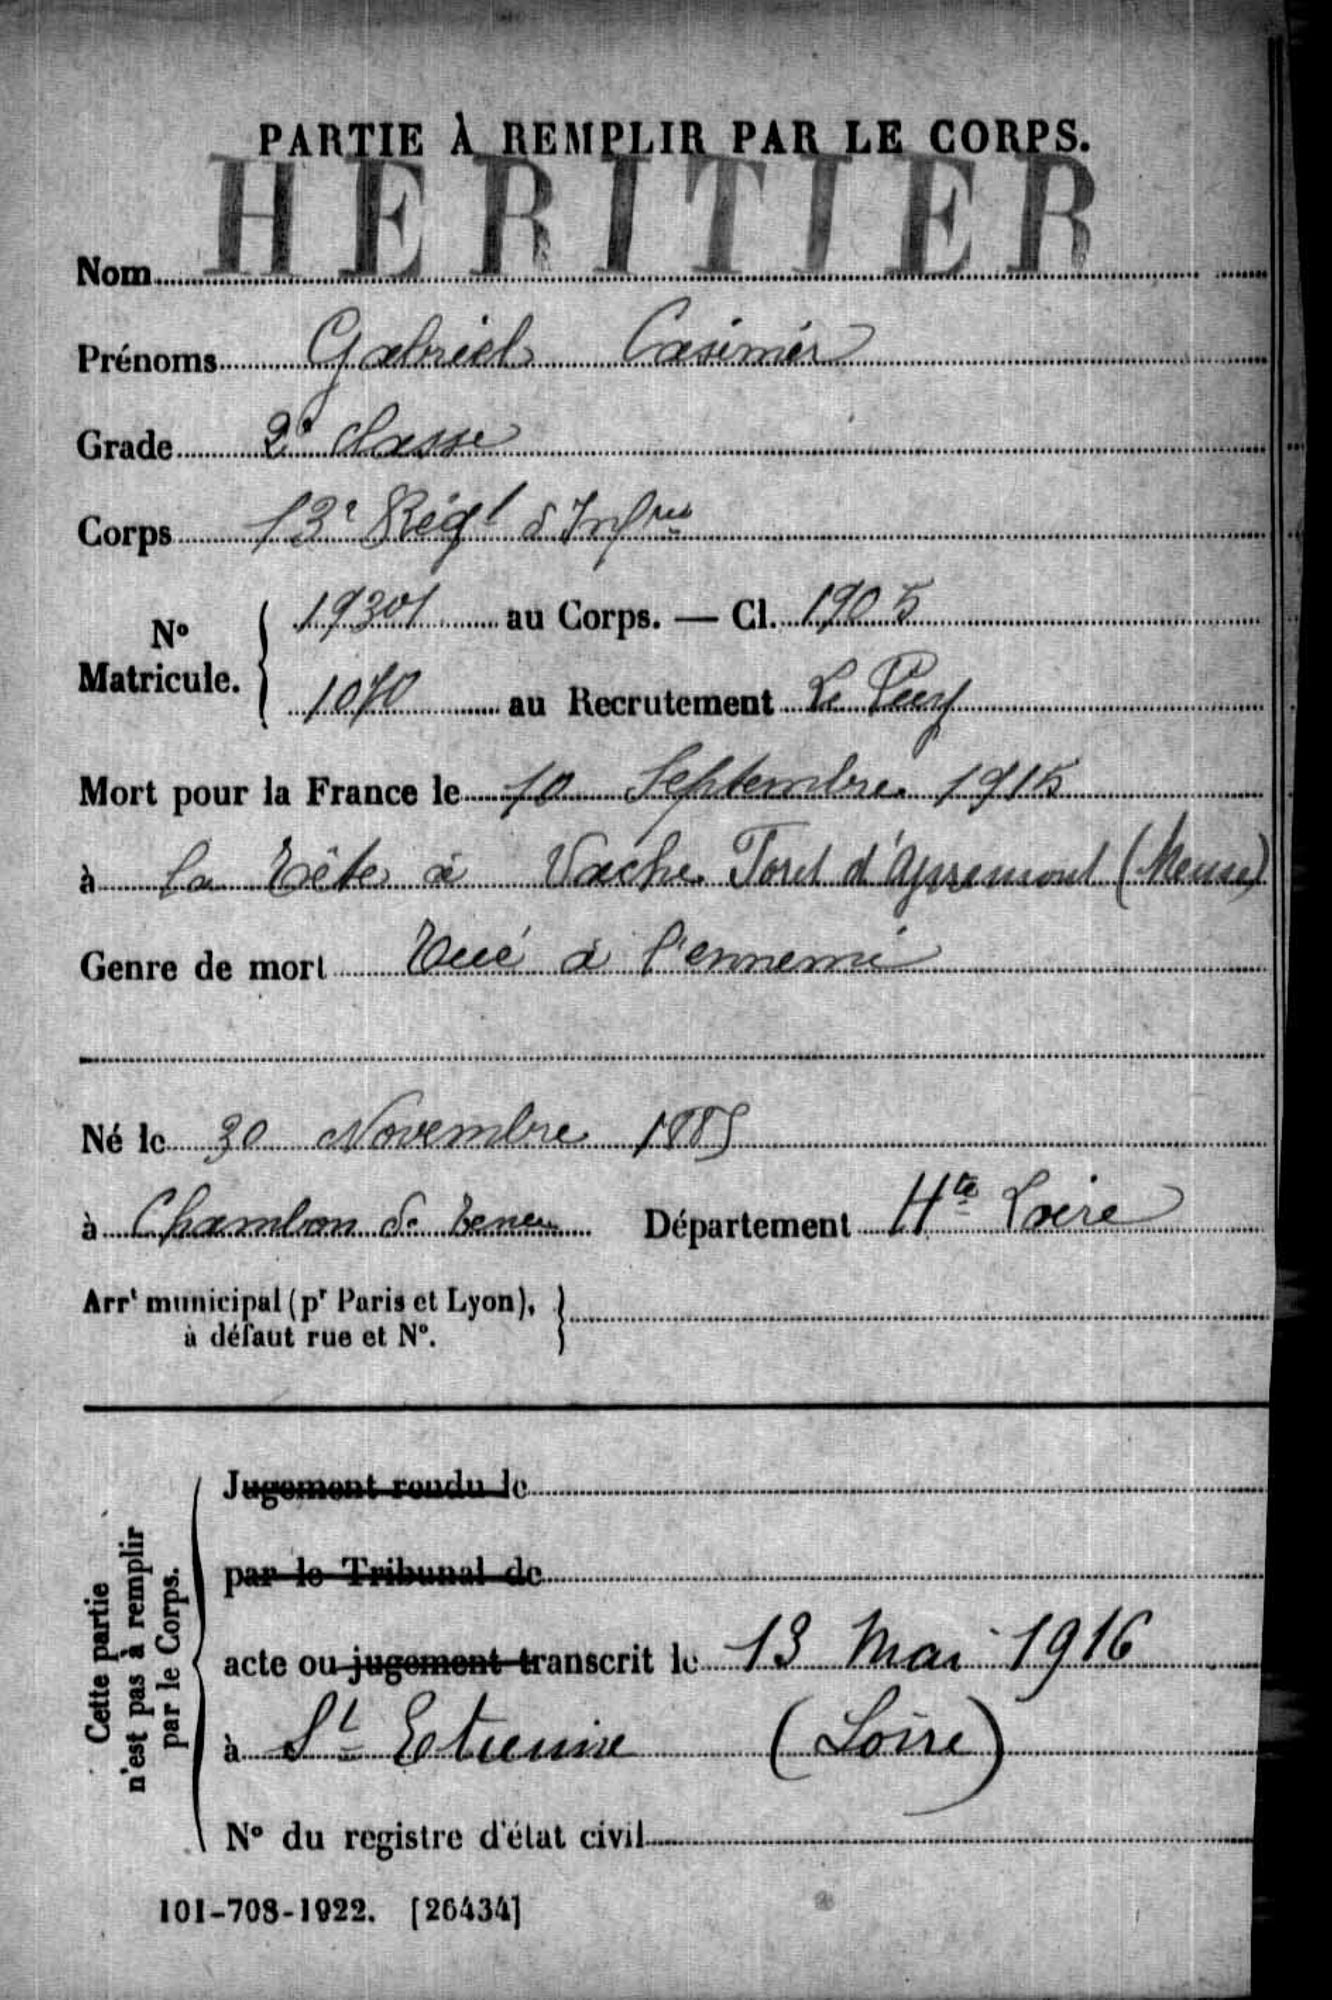 PARTIE À REMPLIR PAR LE CORPS.
Nom HERITIER
Prénoms Gabriel Casimir
Grade 2e classe
Corps 13e Régt d'Infrie
No Matricule. 19301 au Corps. — Cl. 1905
1070 au Recrutement Le Puy
Mort pour la France le 10 Septembre 1915
à la Tête à Vache Foret d'Apremont (Meuse)
Genre de mort Tué à l'ennemi
Né le 30 Novembre 1885
à Chambon de Tence Département Hte Loire
Arrt municipal (pr Paris et Lyon),
à défaut rue et No.
Cette partie
n'est pas à remplir
par le Corps.
Jugement rendu le
par le Tribunal de
acte ou jugement transcrit le 13 Mai 1916
à St Etienne (Loire)
No du registre d'état civil
101-708-1922. [26434]